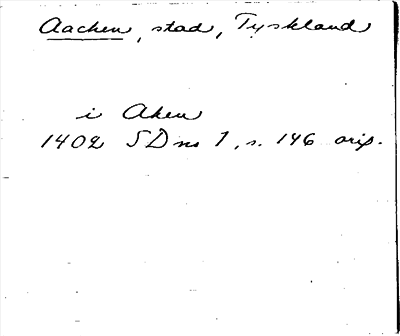 Aachen, stad, Tyskland
i Aken
1402 SD ns 1, s. 146 orig.